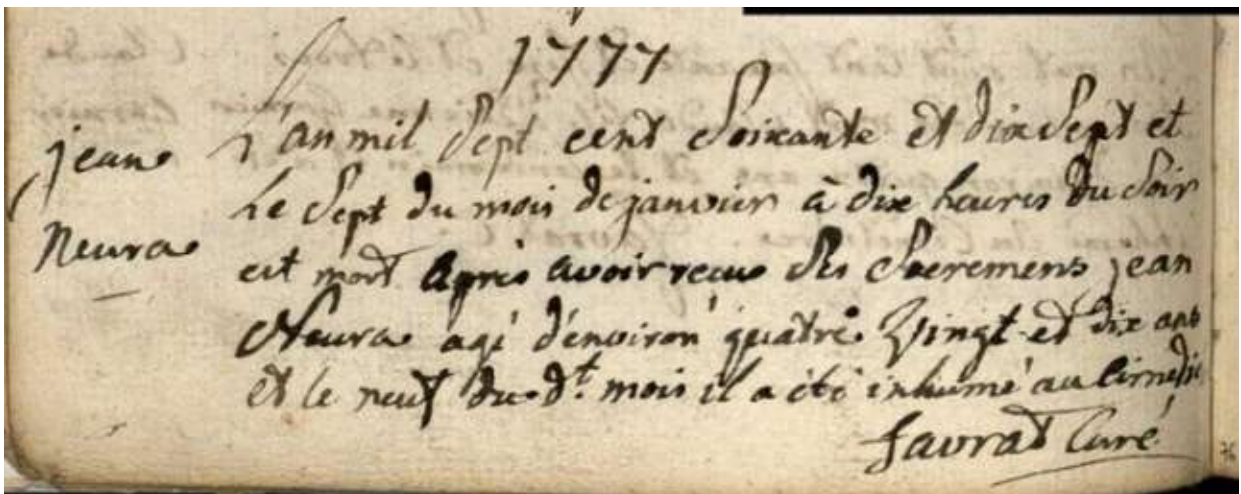 1777
jean
Neura
L'an mil Sept cent Soixante et dix Sept et
Le Sept du mois de janvier à dix heures du Soir
est mort après avoir recu Ses Sacremens jean
Neura agé d'environ quatre Vingt et dix ans
et le neuf du dt. mois il a été inhumé au Cime
favrat Curé
76